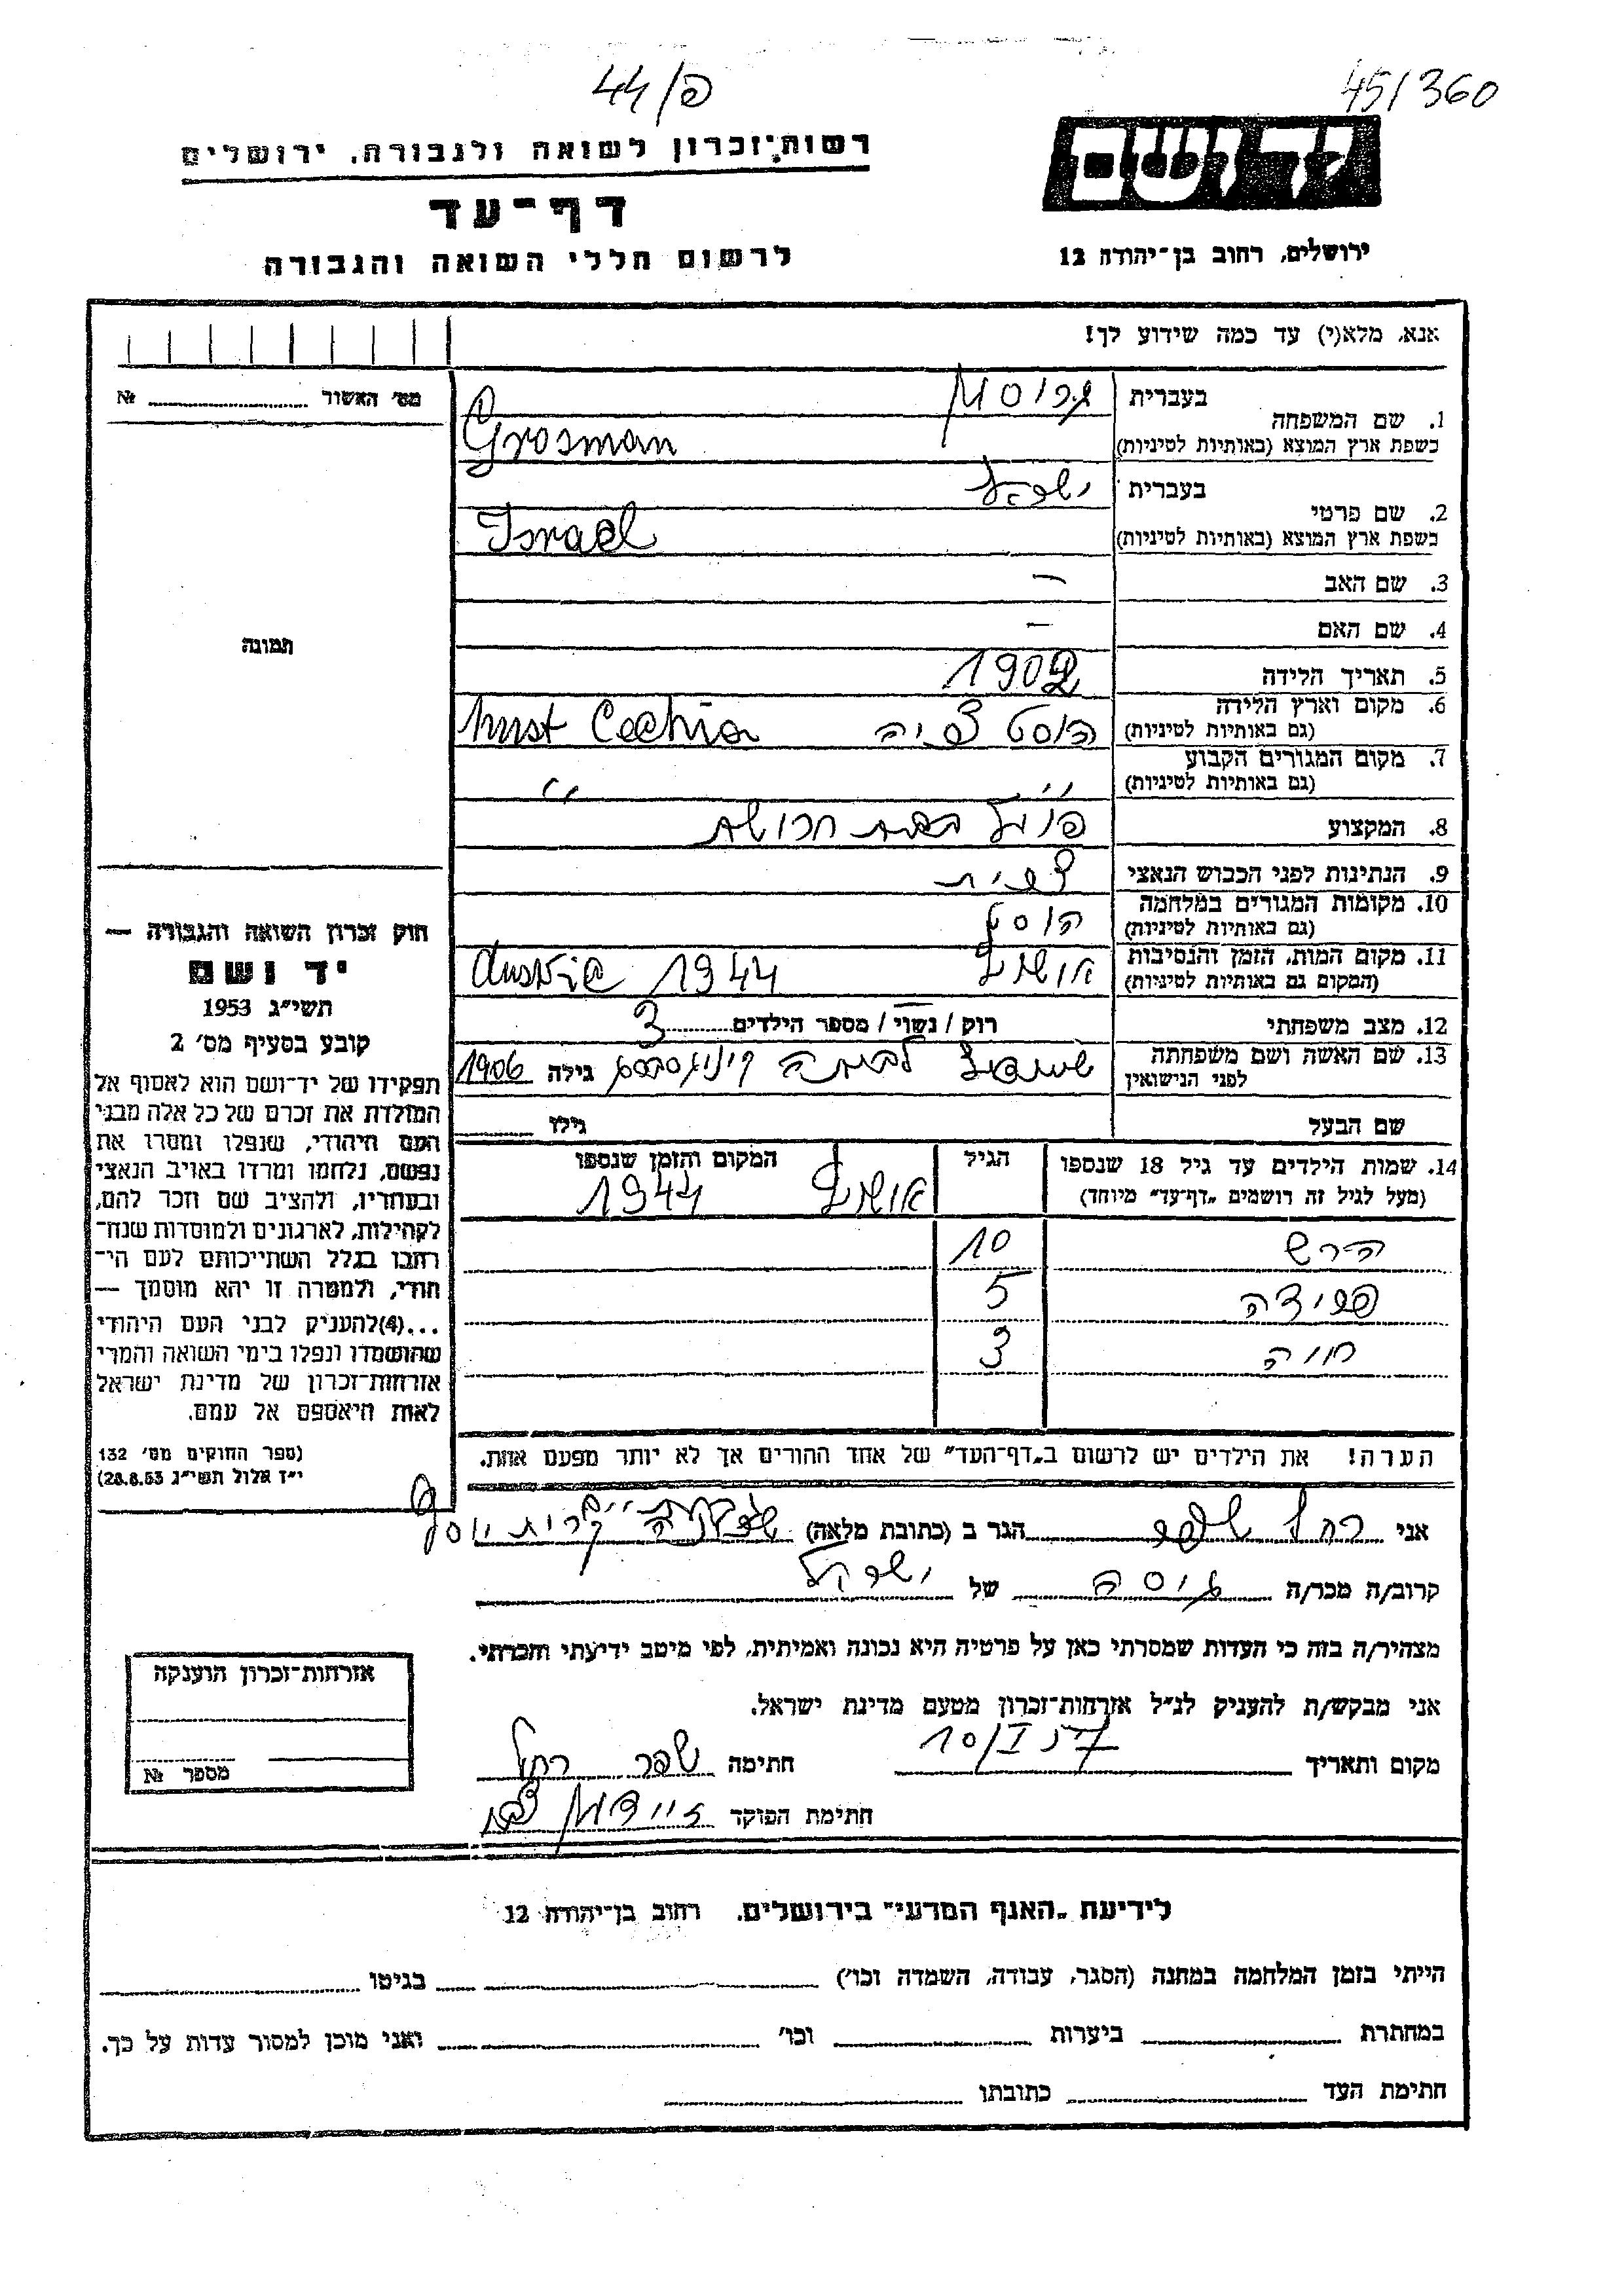 פ/44
45/360
יד ושם
רשות־זכרון לשואה ולגבורה, ירושלים
דף־עד
לרשום חללי השואה והגבורה
ירושלים, רחוב בן־יהודה 12
אנא, מלא(י) עד כמה שידוע לך!
מס׳ האשור № 
1. שם המשפחה
בעברית גרוסמן
כשפת ארץ המוצא (באותיות לטיניות) Grosman
2. שם פרטי
בעברית ישראל
כשפת ארץ המוצא (באותיות לטיניות) Israel
3. שם האב –
4. שם האם –
5. תאריך הלידה 1902
6. מקום וארץ הלידה (גם באותיות לטיניות) הוסט צ'כיה hust Cechia
7. מקום המגורים הקבוע (גם באותיות לטיניות) ״ ״
8. המקצוע פועל בבית חרושת
9. הנתינות לפני הכבוש הנאצי צ'כית
10. מקומות המגורים במלחמה (גם באותיות לטיניות) הוסט
11. מקום המות, הזמן והנסיבות (המקום גם באותיות לטיניות) אושויץ 1944
12. מצב משפחתי רוק / נשוי / מספר הילדים 3
13. שם האשה ושם משפחתה לפני הנישואין לבית גילה 1906
שם הבעל גילו
14. שמות הילדים עד גיל 18 שנספו (מעל לגיל זה רושמים „דף־עד״ מיוחד)
הגיל
המקום והזמן שנספו
אושויץ 1944
הירש 10
פרידה 5
חוה 3
הערה! את הילדים יש לרשום ב„דף־העד״ של אחד ההורים אך לא יותר מפעם אחת.
תמונה
חוק זכרון השואה והגבורה —
יד ושם
תשי״ג 1953
קובע בסעיף מס׳ 2
תפקידו של יד־ושם הוא לאסוף אל
המולדת את זכרם של כל אלה מבני
העם היהודי, שנפלו ומסרו את
נפשם, נלחמו ומרדו באויב הנאצי
ובעוזריו, ולהציב שם וזכר להם,
לקהילות, לארגונים ולמוסדות שנח־
רבו בגלל השתייכותם לעם הי־
הודי, ולמטרה זו יהא מוסמך —
...(4) להעניק לבני העם היהודי
שהושמדו ונפלו בימי השואה והמרי
אזרחות־זכרון של מדינת ישראל
לאות היאספם אל עמם.
(ספר החוקים מס׳ 132
י״ז אלול תשי״ג 28.8.53)
אני רחל שפר הגר ב (כתובת מלאה) קרית יוסף
קרוב/ה מכר/ה גיסה של ישראל
מצהיר/ה בזה כי העדות שמסרתי כאן על פרטיה היא נכונה ואמיתית, לפי מיטב ידיעתי והכרתי.
אני מבקש/ת להעניק לנ״ל אזרחות־זכרון מטעם מדינת ישראל.
מקום ותאריך 10/I 57 חתימה שפר רחל
חתימת הפוקד
אזרחות־זכרון הוענקה
מספר №
לידיעת „האגף המדעי״ בירושלים, רחוב בן־יהודה 12
הייתי בזמן המלחמה במחנה (הסגר, עבודה, השמדה וכו׳) בגיטו
במחתרת ביערות וכו׳ ואני מוכן למסור עדות על כך.
חתימת העד כתובתו